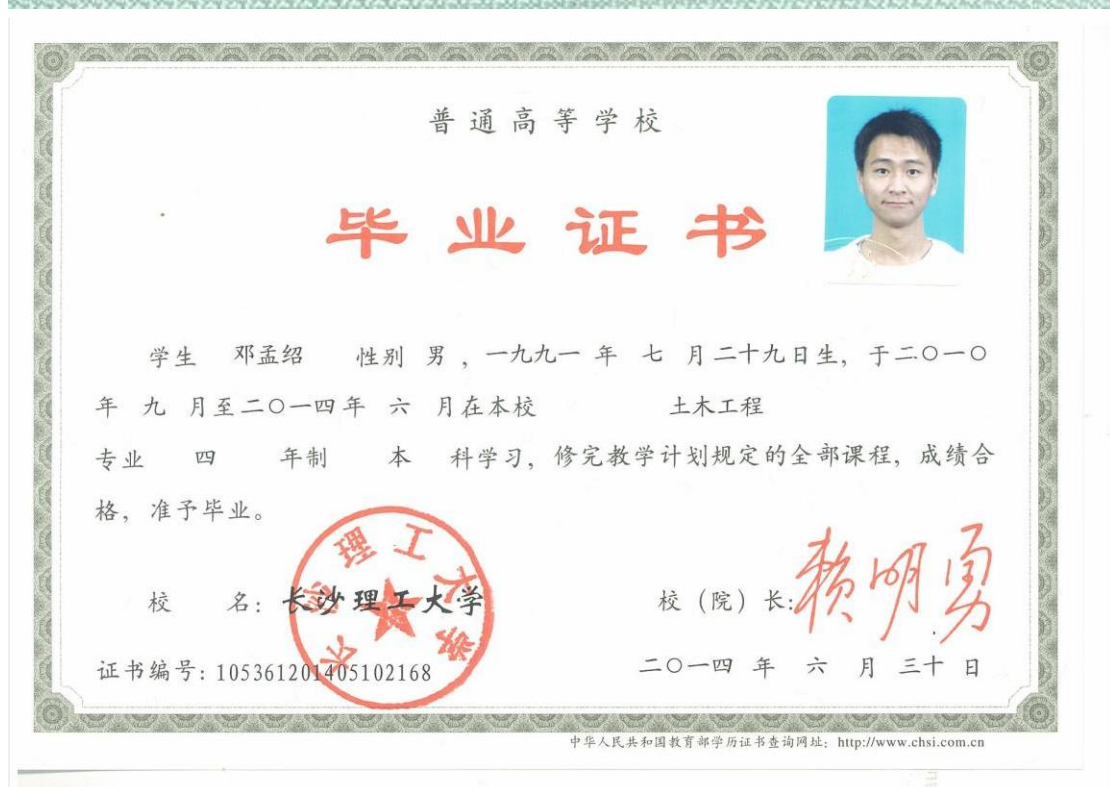 普通高等学校
毕业证书
学生 邓孟绍 性别 男，一九九一 年 七 月二十九日生，于二〇一〇
年 九 月至二〇一四年 六 月在本校 土木工程
专业 四 年制 本 科学习，修完教学计划规定的全部课程，成绩合
格，准予毕业。
长沙理工大学
校 名：长沙理工大学 校（院）长：赖明勇
证书编号：105361201405102168 二〇一四 年 六 月 三十 日
中华人民共和国教育部学历证书查询网址：http://www.chsi.com.cn